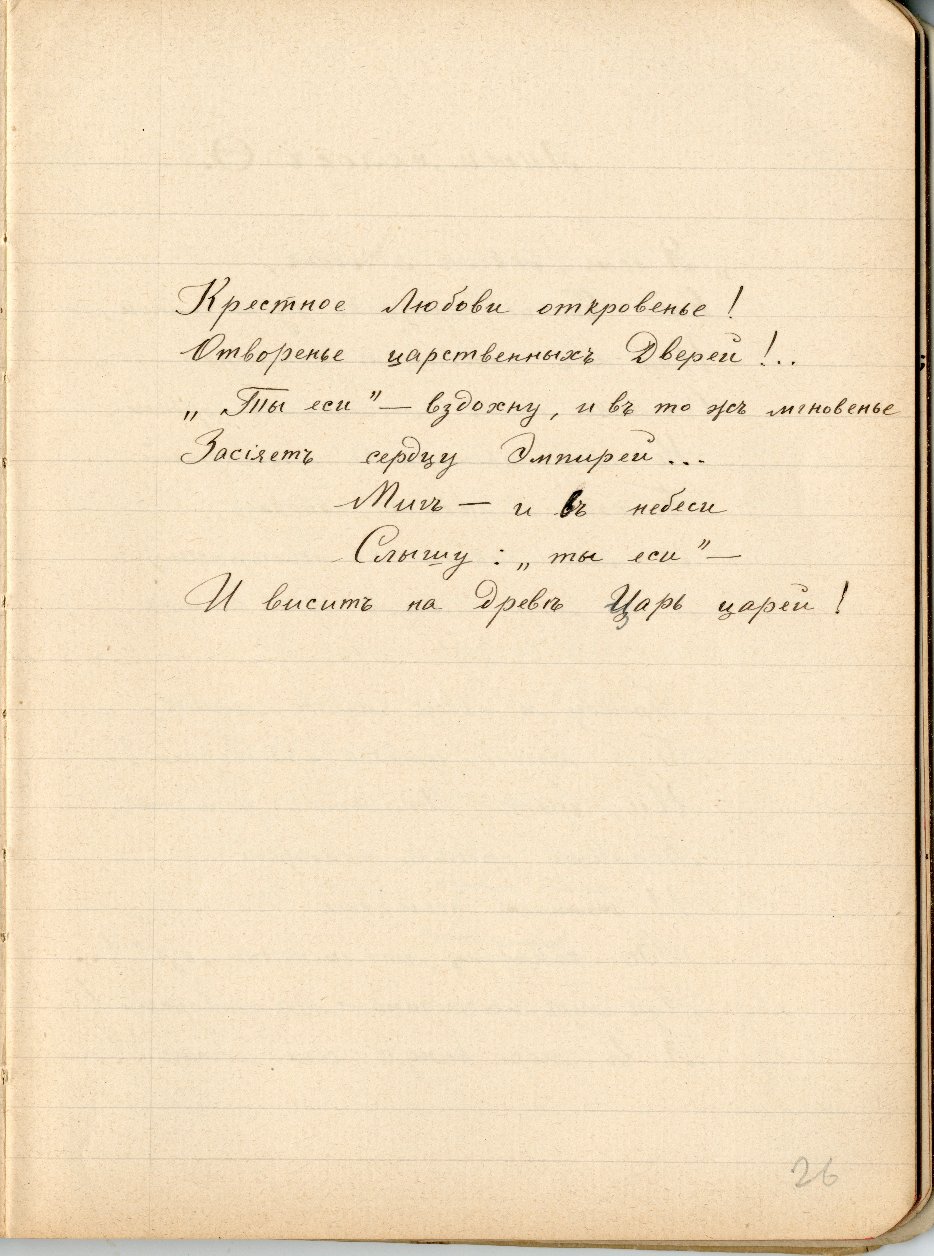 Крестное Любови откровенье!
Отворенье царственныхъ Дверей!..
„Ты еси” — вздохну, и въ то жъ мгновенье
Засіяетъ сердцу Эмпирей...
Мигъ — и въ небеси
Слышу: „ты еси” —
И виситъ на древѣ Царь царей!
26